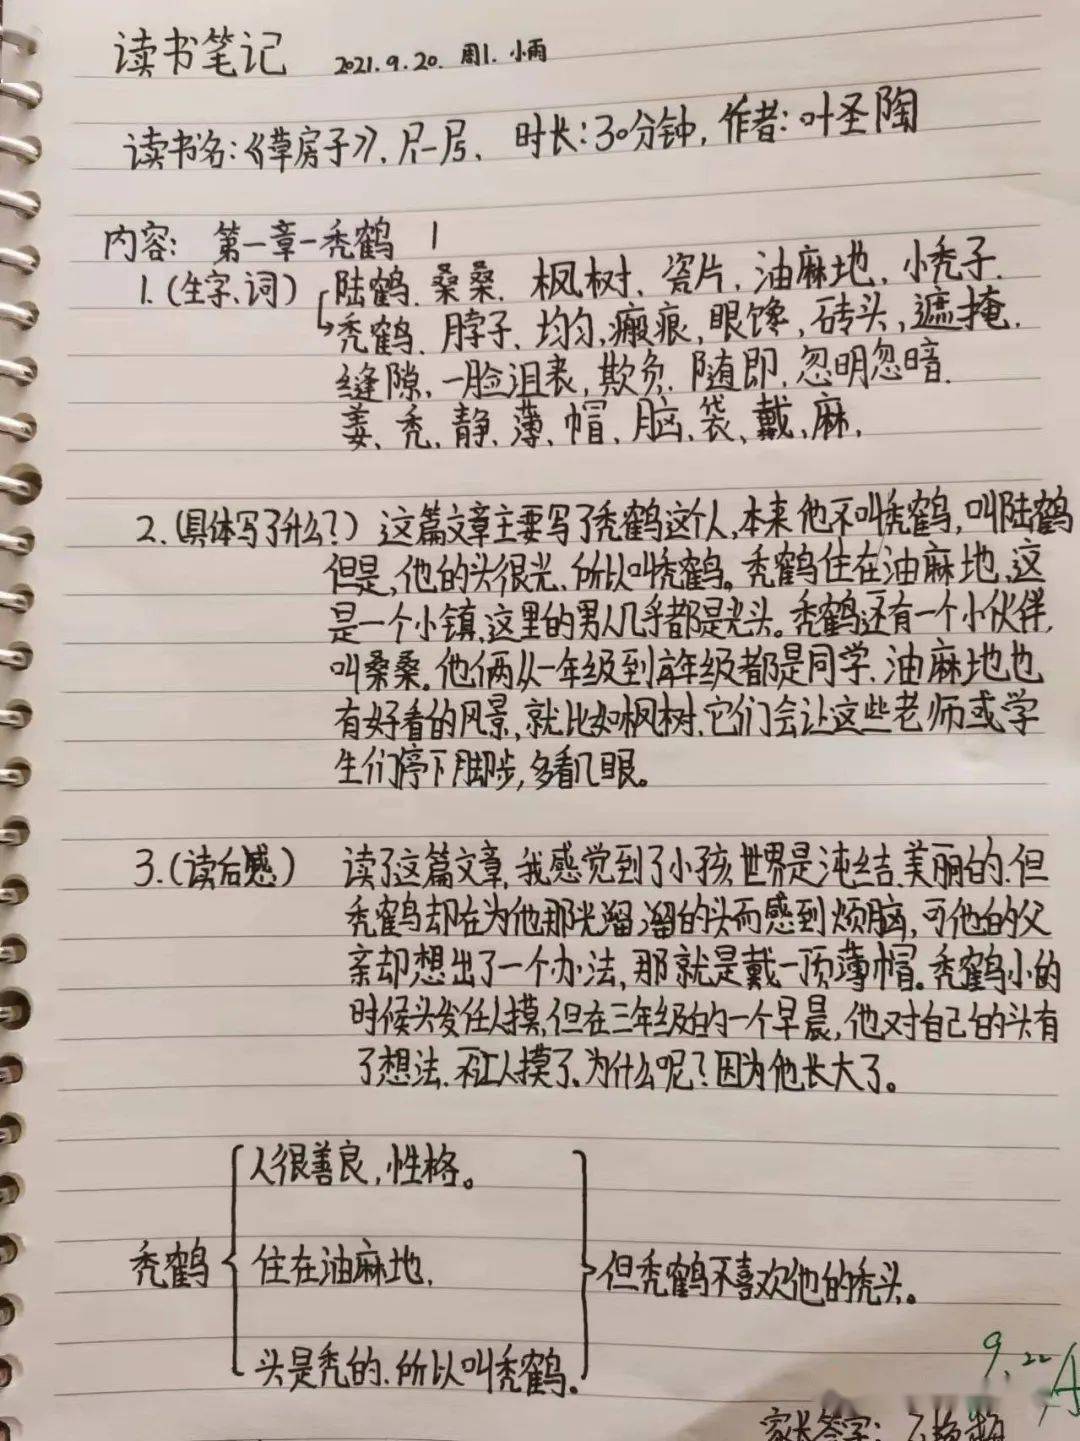 读书笔记 2021.9.20. 周1. 小雨
读书名:《草房子》, 时长:30分钟, 作者:叶圣陶
内容: 第一章-秃鹤 1
1.(生字、词) 陆鹤、桑桑、枫树、瓷片、油麻地、小秃子、
→秃鹤、脖子、均匀、瘢痕、眼馋、砖头、遮掩、
缝隙、一脸沮丧、欺负、随即、忽明忽暗、
姜、秃、静、薄、帽、脑、袋、戴、麻、
2.(具体写了什么?) 这篇文章主要写了秃鹤这个人,本来他不叫秃鹤,叫陆鹤
但是,他的头很光、所以叫秃鹤。秃鹤住在油麻地、这
是一个小镇,这里的男人几乎都是光头。秃鹤还有一个小伙伴,
叫桑桑。他俩从一年级到六年级都是同学、油麻地也
有好看的风景,就比如枫树、它们会让这些老师或学
生们停下脚步,多看几眼。
3.(读后感) 读了这篇文章,我感觉到了小孩世界是沌结、美丽的、但
秃鹤却在为他那光溜溜的头而感到烦脑,可他的父
亲却想出了一个办法,那就是戴一顶薄帽。秃鹤小的
时候头发任人摸,但在三年级的一个早晨,他对自己的头有
了想法、不让人摸了、为什么呢?因为他长大了。
人很善良,性格。
秃鹤 住在油麻地, 但秃鹤不喜欢他的秃头。
头是秃的、所以叫秃鹤。
9.22 A
家长签字: